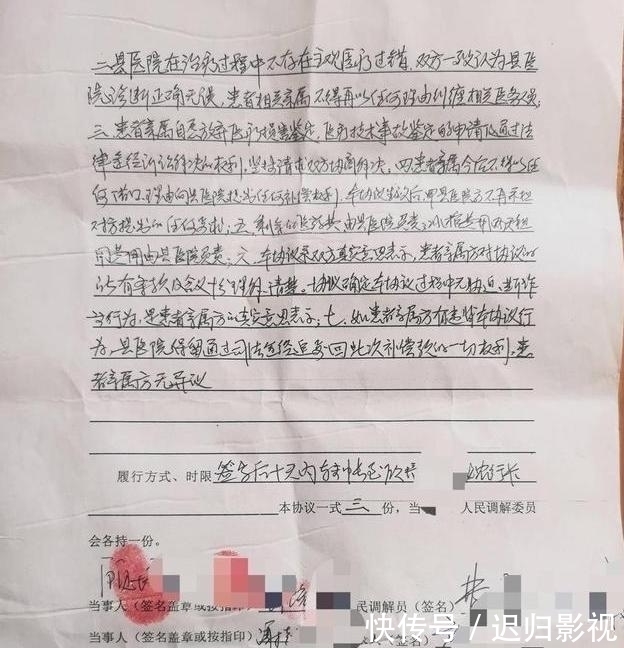 二.县医院在治疗过程中不存在主观医疗过错,双方一致认为县医
院诊断正确无误,患者相关亲属不得再以任何理由纠缠相关医务人员。
三.患者亲属自愿放弃医疗损害鉴定,医疗技术事故鉴定的申请及通过法
律途径诉讼解决的权利,坚持请求双方协商解决。四.患者亲属今后不得以任
何借口、理由向县医院提出任何补偿权利,本协议生效后,县医院方不再承担
对方提出的任何要求;五.剩余的医药费由县医院负责,
用费用由县医院负责;六.本协议系双方真实意思表示,患者亲属方对协议的
所有条款及含义
行为,是患者亲属方的真实意思表示;七.如患者亲属方有违背本协议行
为,县医院保留通过司法途径追回此次补偿款的一切权利,患
者亲属方无异议
履行方式、时限 签字后十天内
本协议一式 三 份,当 人民调解委员
会各持一份。
当事人(签名盖章或按指印) 民调解员(签名)
当事人(签名盖章或按指印)
快传号/迟归影视